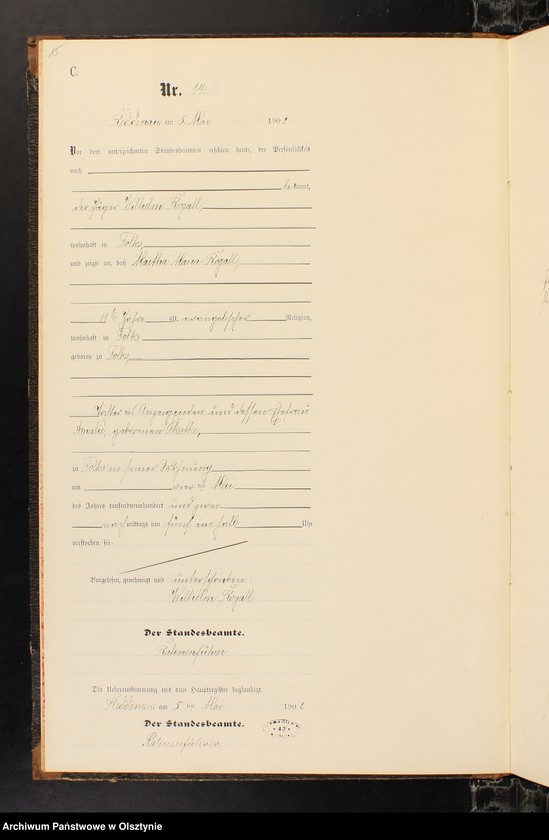 15
C.
Nr. 14
am 5. Mai 1902
Vor dem unterzeichneten Standesbeamten erschien heute, der Persönlichkeit
nach
bekannt,
der Jäger Wilhelm Rogall,
wohnhaft in Tolks
und zeigte an, daß Martha Maria Rogall,
11 Jahre alt, evangelischer Religion,
wohnhaft in Tolks
geboren zu Tolks
Tochter des Anzeigenden und dessen Ehefrau
Amalie, geborenen
zu Tolks in seiner Wohnung
am Mai
des Jahres tausendneunhundert und zwei
nachmittags um fünf ein halb Uhr
verstorben sei.
Vorgelesen, genehmigt und unterschrieben
Wilhelm Rogall
Der Standesbeamte.
Die Uebereinstimmung mit dem Hauptregister beglaubigt.
am 5. ten Mai 1902
Der Standesbeamte.
47
Archiwum Państwowe w Olsztynie